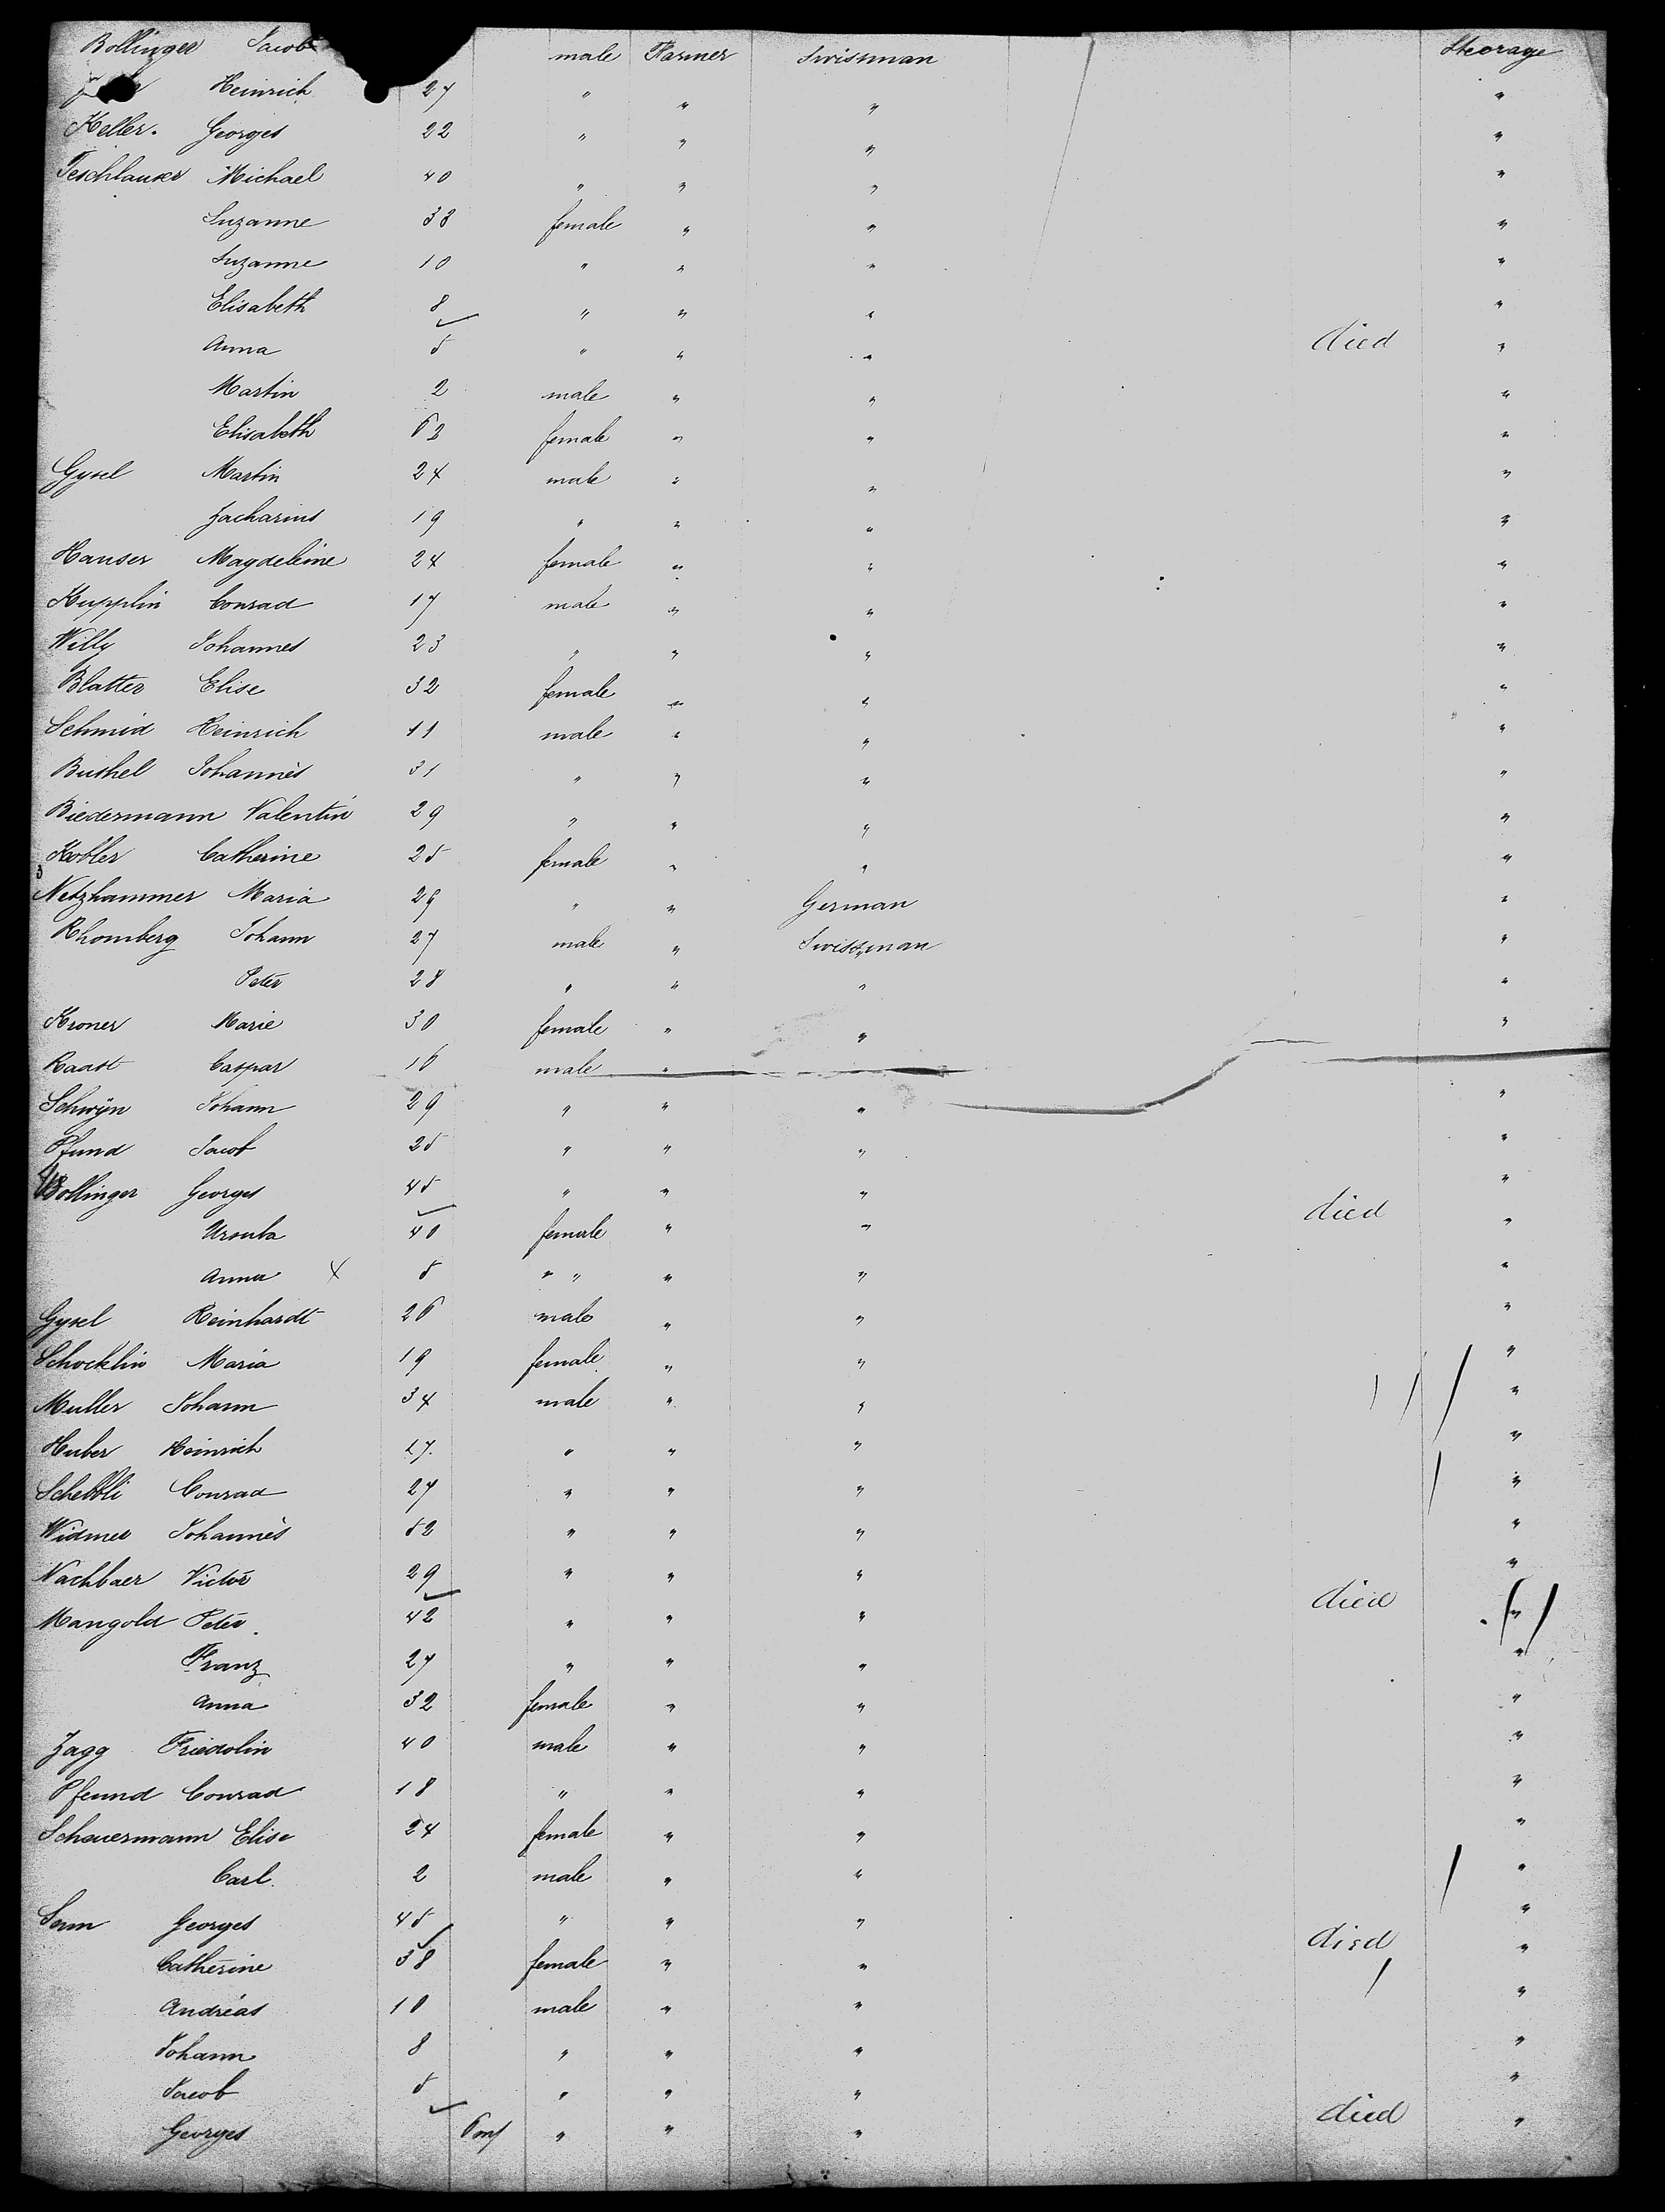 Bollinger Jacob male Farmer Swissman Steerage
Heinrich 27 " " " "
Keller. Georges 22 " " " "
Teschlauser Michael 40 " " " "
Suzanne 33 female " " "
Suzanne 10 " " " "
Elisabeth 8 " " " "
Anna 5 " " " died "
Martin 2 male " " "
Elisabeth 62 female " " "
Gysel Martin 24 male " " "
Zacharius 19 " " " "
Hauser Magdeleine 24 female " " "
Kupplin Conrad 17 male " " "
Willy Johannes 23 " " " "
Blatter Elise 32 female " " "
Schmid Heinrich 11 male " " "
Buthel Johannès 31 " " " "
Biedermann Valentin 29 " " " "
Kobler Catherine 25 female " " "
Netzhammer Maria 29 " " German "
Rhomberg Johann 27 male " Swissman "
Peter 28 " " " "
Kroner Marie 30 female " " "
Raast Caspar 16 male "
Schwÿn Johann 29 " " " "
Pfund Jacob 25 " " " "
Bollinger Georges 45 " " " "
Ursula 40 female " " died "
Anna X 5 " " " " "
Gysel Reinhardt 26 male " " "
Schocklin Maria 19 female " " "
Muller Johann 34 male " " "
Huber Heinrich 27. " " " "
Schebbli Conrad 27 " " " "
Widmer Johannès 52 " " " "
Nachbaer Victor 29 " " " "
Mangold Peter 42 " " " died "
Franz 27 " " " "
Anna 32 female " " "
Zagg Friedolin 40 male " " "
Pfeund Conrad 18 " " " "
Schauermann Elise 24 female " " "
Carl. 2 male " " "
Senn Georges 45 " " " "
Catherine 38 female " " died "
Andréas 10 male " " "
Johann 8 " " " "
Jacob 5 " " " "
Georges 6 m/ " " " died "